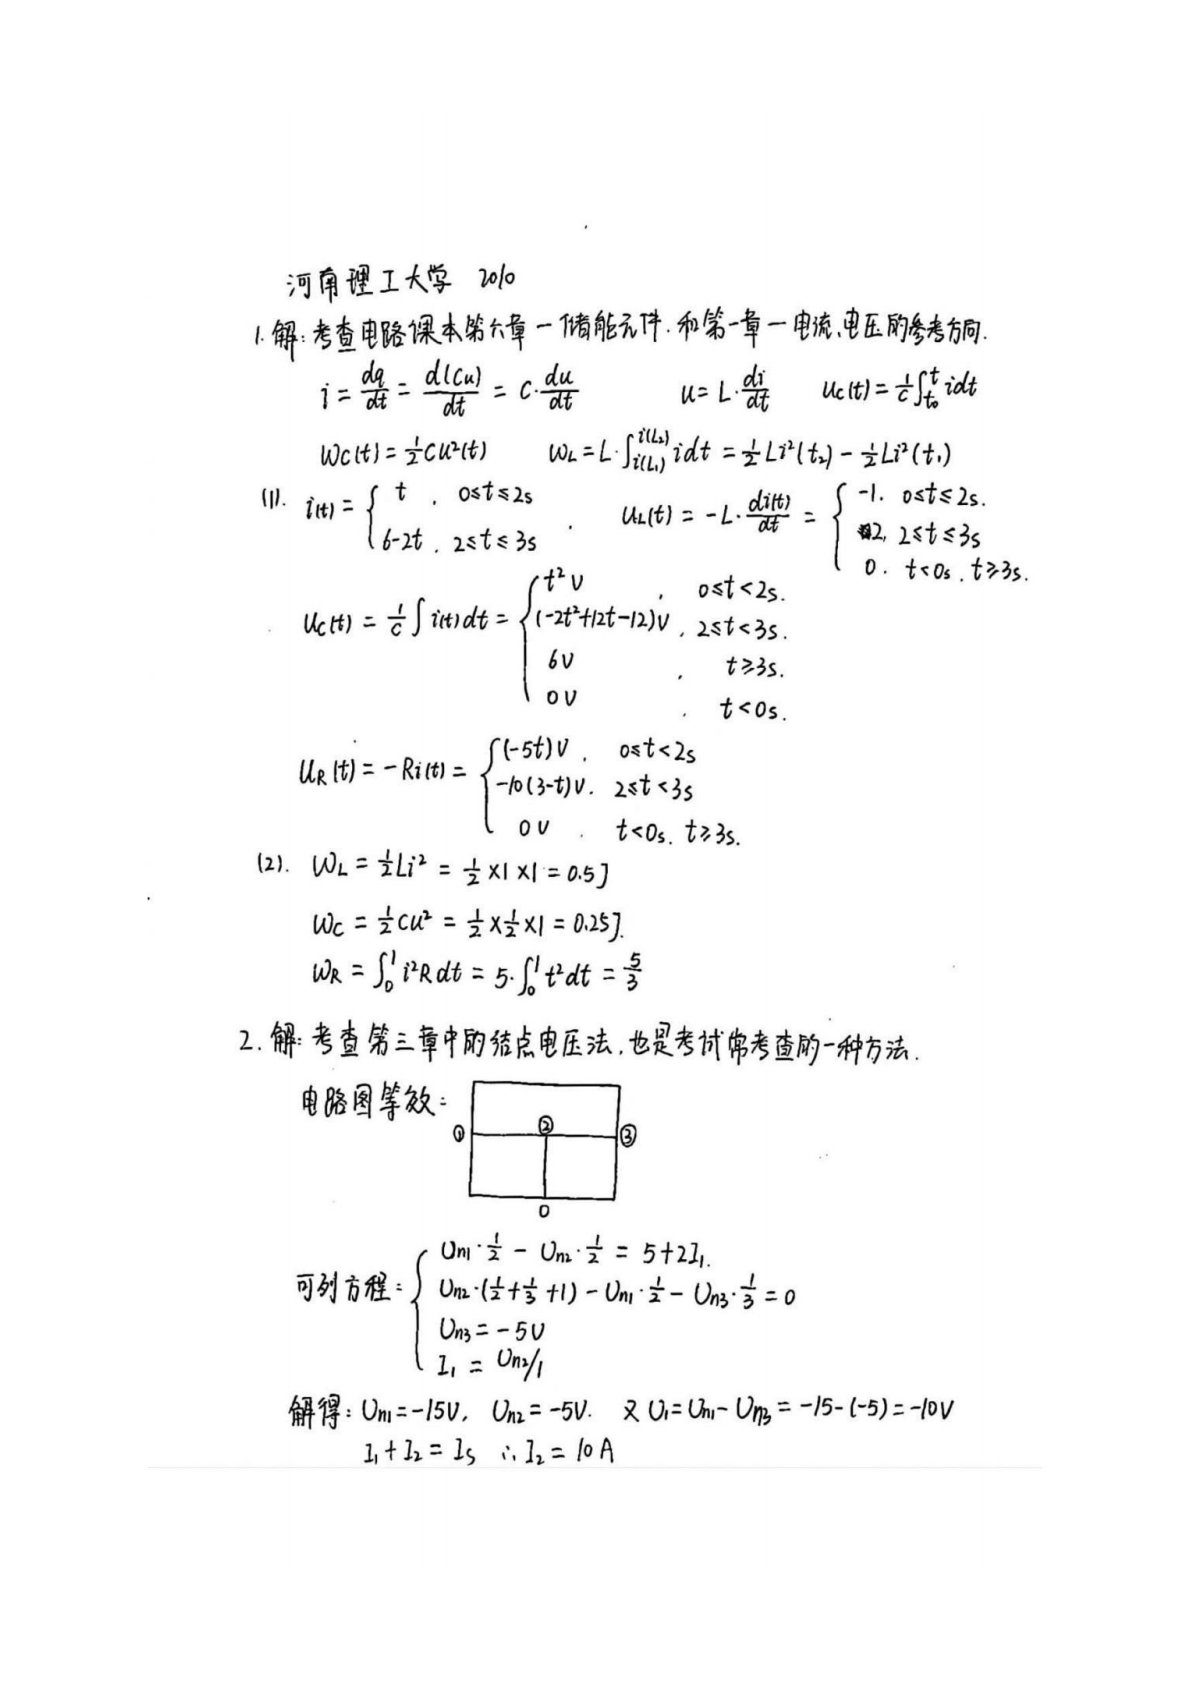 河南理工大学 2010
1.解:考查电路课本第六章-储能元件.和第一章-电流、电压的参考方向.
i = dq/dt = d(Cu)/dt = C·du/dt    u = L·di/dt    uc(t) = 1/C ∫_{t₀}^{t} idt
Wc(t) = 1/2 Cu²(t)    WL = L·∫_{i(L₁)}^{i(L₂)} idt = 1/2 Li²(t₂) - 1/2 Li²(t₁)
(1). i(t) = { t , 0≤t≤2s    uL(t) = -L·di(t)/dt = { -1. 0≤t≤2s.
6-2t , 2≤t≤3s    2, 2≤t≤3s
0. t<0s , t≥3s.
uc(t) = 1/C ∫ i(t)dt = { t² V , 0≤t<2s.
(-2t²+12t-12)V , 2≤t<3s.
6V , t≥3s.
0V , t<0s.
UR(t) = -Ri(t) = { (-5t)V , 0≤t<2s
-10(3-t)V. 2≤t<3s
0V . t<0s. t≥3s.
(2). WL = 1/2 Li² = 1/2 ×1×1 = 0.5J
Wc = 1/2 cu² = 1/2 × 1/2 ×1 = 0.25J.
WR = ∫₀¹ i²Rdt = 5·∫₀¹ t²dt = 5/3
2.解:考查第三章中的结点电压法,也是考试常考查的一种方法.
电路图等效:
① ② ③
0
可列方程: { Un1·1/2 - Un2·1/2 = 5+2I₁.
Un2·(1/2+1/3+1) - Un1·1/2 - Un3·1/3 = 0
Un3 = -5V
I₁ = Un2/1
解得: Un1 = -15V, Un2 = -5V. 又 U₁ = Un1 - Un3 = -15-(-5) = -10V
I₁ + I₂ = Is ∴ I₂ = 10A